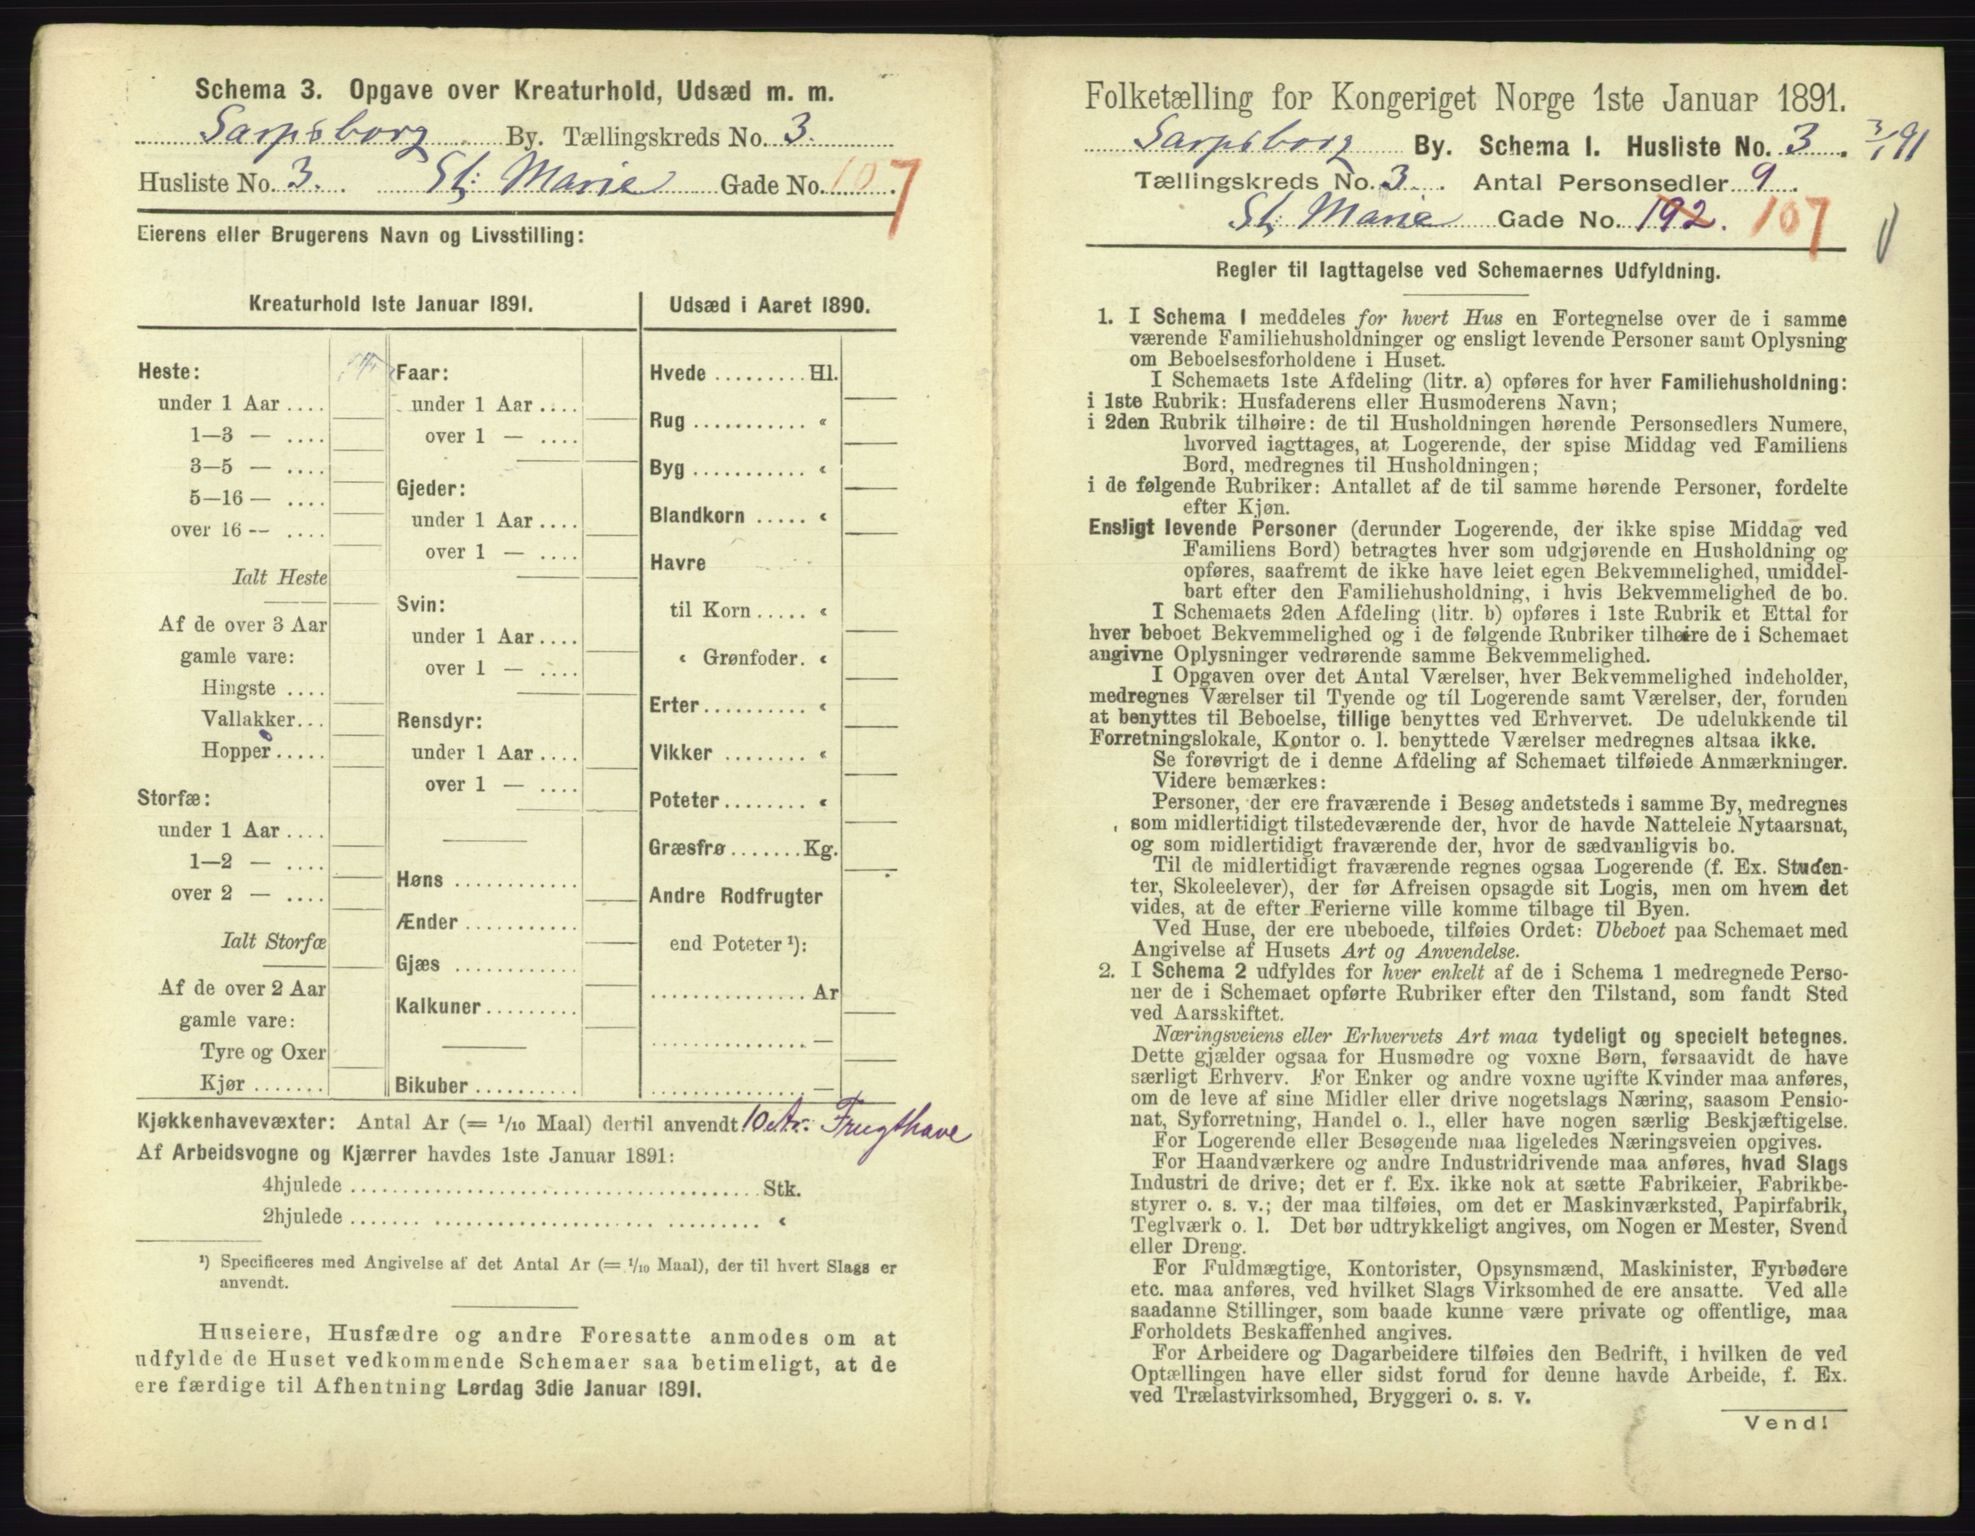 Schema 3. Opgave over Kreaturhold, Udsæd m. m.
Sarpsborg By. Tællingskreds No. 3.
Husliste No. 3. St: Marie Gade No. 107.
Eierens eller Brugerens Navn og Livsstilling:
Kreaturhold 1ste Januar 1891.
Heste:
under 1 Aar ....
1—3 — ....
3—5 — ....
5—16 — ....
over 16 — ....
Ialt Heste
Af de over 3 Aar
gamle vare:
Hingste ....
Vallakker...
Hopper .....
Storfæ:
under 1 Aar ....
1—2 — ....
over 2 — ....
Ialt Storfæ
Af de over 2 Aar
gamle vare:
Tyre og Oxer
Kjør .......
Faar:
under 1 Aar ....
over 1 — ....
Gjeder:
under 1 Aar ....
over 1 — ....
Svin:
under 1 Aar ....
over 1 — ....
Rensdyr:
under 1 Aar ....
over 1 — ....
Høns ............
Ænder ...........
Gjæs ............
Kalkuner .........
Bikuber ..........
Udsæd i Aaret 1890.
Hvede ......... Hl.
Rug ........... «
Byg ........... «
Blandkorn ..... «
Havre
til Korn ..... «
« Grønfoder. «
Erter .......... «
Vikker ........ «
Poteter ........ «
Græsfrø ....... Kg.
Andre Rodfrugter
end Poteter ¹):
............... Ar
............... —
............... —
Kjøkkenhavevæxter: Antal Ar (= 1/10 Maal) dertil anvendt 10 Ar. Frugthave
Af Arbeidsvogne og Kjærrer havdes 1ste Januar 1891:
4hjulede ........................................ Stk.
2hjulede ........................................ «
¹) Specificeres med Angivelse af det Antal Ar (= 1/10 Maal), der til hvert Slags er
anvendt.
Huseiere, Husfædre og andre Foresatte anmodes om at
udfylde de Huset vedkommende Schemaer saa betimeligt, at de
ere færdige til Afhentning Lørdag 3die Januar 1891.
Folketælling for Kongeriget Norge 1ste Januar 1891.
Sarpsborg By. Schema I. Husliste No. 3. 3/1 91
Tællingskreds No. 3. Antal Personsedler 9.
St: Marie Gade No. 192. 107
Regler til Iagttagelse ved Schemaernes Udfyldning.
1. I Schema I meddeles for hvert Hus en Fortegnelse over de i samme
værende Familiehusholdninger og ensligt levende Personer samt Oplysning
om Beboelsesforholdene i Huset.
I Schemaets 1ste Afdeling (litr. a) opføres for hver Familiehusholdning:
i 1ste Rubrik: Husfaderens eller Husmoderens Navn;
i 2den Rubrik tilhøire: de til Husholdningen hørende Personsedlers Numere,
hvorved iagttages, at Logerende, der spise Middag ved Familiens
Bord, medregnes til Husholdningen;
i de følgende Rubriker: Antallet af de til samme hørende Personer, fordelte
efter Kjøn.
Ensligt levende Personer (derunder Logerende, der ikke spise Middag ved
Familiens Bord) betragtes hver som udgjørende en Husholdning og
opføres, saafremt de ikke have leiet egen Bekvemmelighed, umiddel-
bart efter den Familiehusholdning, i hvis Bekvemmelighed de bo.
I Schemaets 2den Afdeling (litr. b) opføres i 1ste Rubrik et Ettal for
hver beboet Bekvemmelighed og i de følgende Rubriker tilhøire de i Schemaet
angivne Oplysninger vedrørende samme Bekvemmelighed.
I Opgaven over det Antal Værelser, hver Bekvemmelighed indeholder,
medregnes Værelser til Tyende og til Logerende samt Værelser, der, foruden
at benyttes til Beboelse, tillige benyttes ved Erhvervet. De udelukkende til
Forretningslokale, Kontor o. l. benyttede Værelser medregnes altsaa ikke.
Se forøvrigt de i denne Afdeling af Schemaet tilføiede Anmærkninger.
Videre bemærkes:
Personer, der ere fraværende i Besøg andetsteds i samme By, medregnes
som midlertidigt tilstedeværende der, hvor de havde Natteleie Nytaarsnat,
og som midlertidigt fraværende der, hvor de sædvanligvis bo.
Til de midlertidigt fraværende regnes ogsaa Logerende (f. Ex. Studen-
ter, Skoleelever), der før Afreisen opsagde sit Logis, men om hvem det
vides, at de efter Ferierne ville komme tilbage til Byen.
Ved Huse, der ere ubeboede, tilføies Ordet: Ubeboet paa Schemaet med
Angivelse af Husets Art og Anvendelse.
2. I Schema 2 udfyldes for hver enkelt af de i Schema 1 medregnede Perso-
ner de i Schemaet opførte Rubriker efter den Tilstand, som fandt Sted
ved Aarsskiftet.
Næringsveiens eller Erhvervets Art maa tydeligt og specielt betegnes.
Dette gjælder ogsaa for Husmødre og voxne Børn, forsaavidt de have
særligt Erhverv. For Enker og andre voxne ugifte Kvinder maa anføres,
om de leve af sine Midler eller drive nogetslags Næring, saasom Pensio-
nat, Syforretning, Handel o. l., eller have nogen særlig Beskjæftigelse.
For Logerende eller Besøgende maa ligeledes Næringsveien opgives.
For Haandværkere og andre Industridrivende maa anføres, hvad Slags
Industri de drive; det er f. Ex. ikke nok at sætte Fabrikeier, Fabrikbe-
styrer o. s. v.; der maa tilføies, om det er Maskinværksted, Papirfabrik,
Teglværk o. l. Det bør udtrykkeligt angives, om Nogen er Mester, Svend
eller Dreng.
For Fuldmægtige, Kontorister, Opsynsmænd, Maskinister, Fyrbødere
etc. maa anføres, ved hvilket Slags Virksomhed de ere ansatte. Ved alle
saadanne Stillinger, som baade kunne være private og offentlige, maa
Forholdets Beskaffenhed angives.
For Arbeidere og Dagarbeidere tilføies den Bedrift, i hvilken de ved
Optællingen have eller sidst forud for denne havde Arbeide, f. Ex.
ved Trælastvirksomhed, Bryggeri o. s. v.
Vend!